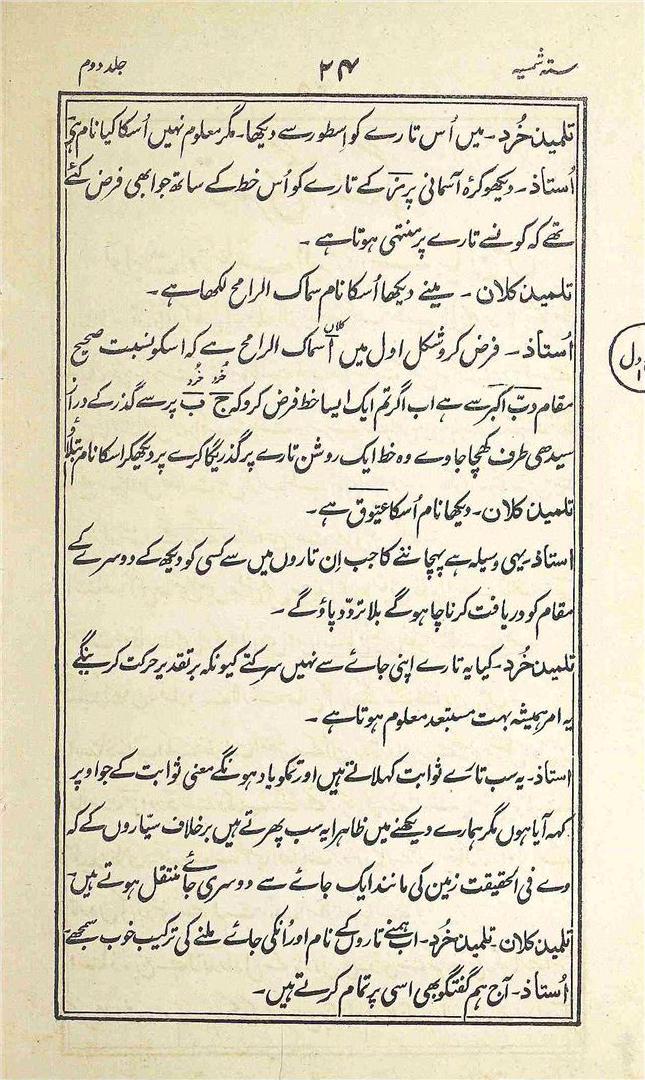 ستہ شمسیہ ۲۴ جلد دوم
تلمیذ خُرد ۔ میں اُس تارے کو اِسطور سے دیکھا۔ مگر معلوم نہیں اُسکا کیا نام ہی
اُستاذ ۔ دیکھو کرۂ آسمانی پر مَز کے تارے کو اُس خط کے ساتھ جو ابھی فرض کئے
تھے کہ کونسے تارے پر منتہی ہوتا ہے ۔
تلمیذ کلان ۔ مینے دیکھا اُسکا نام سماک الرامح لکھا ہے ۔
اُستاذ ۔ فرض کرو شکل اول میں آ کلاں سماک الرامح ہے کہ اسکو نسبت صحیح
مقام دبّ اکبر سے ہے اب اگر تم ایک ایسا خط فرض کرو کہ ج خُرد ب خُرد پر سے گذر کے دراز
سیدھی طرف کھچا جاوے وہ خط ایک روشن تارے پر گذریگا کرے پر دیکھکر اسکا نام بتلاؤ
تلمیذ کلان ۔ دیکھا نام اُسکا عیّوق ہے ۔
استاذ ۔ یہی وسیلہ ہے پہچاننے کا جب اِن تاروں میں سے کسی کو دیکھ کے دوسرے کے
مقام کو دریافت کرنا چاہو گے بلا تردّد پاؤ گے ۔
تلمیذ خُرد ۔ کیا یہ تارے اپنی جائے سے نہیں سرکتے کیونکہ بر تقدیر حرکت کرینگے
یہ امر ہمیشہ بہت مستبعد معلوم ہوتا ہے ۔
استاذ ۔ یہ سب تارے ثوابت کہلاتے ہیں اور تمکو یاد ہونگے معنی ثوابت کے جو اوپر
کہہ آیا ہوں مگر ہمارے دیکھنے میں ظاہرا یہ سب پھرتے ہیں برخلاف سیّاروں کے کہ
وے فی الحقیقت زمین کی مانند ایک جائے سے دوسری جائے منتقل ہوتے ہیں
تلمیذ کلان ۔ تلمیذ خُرد ۔ اب ہمنے تاروں کے نام اور اُنکی جائے ملنے کی ترکیب خوب سمجھے
اُستاذ ۔ آج ہم گفتگو بھی اسی پر تمام کرتے ہیں ۔